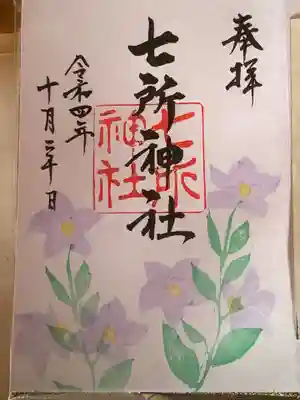 奉拝
七所神社
七所神社
令和四年
十月二十日